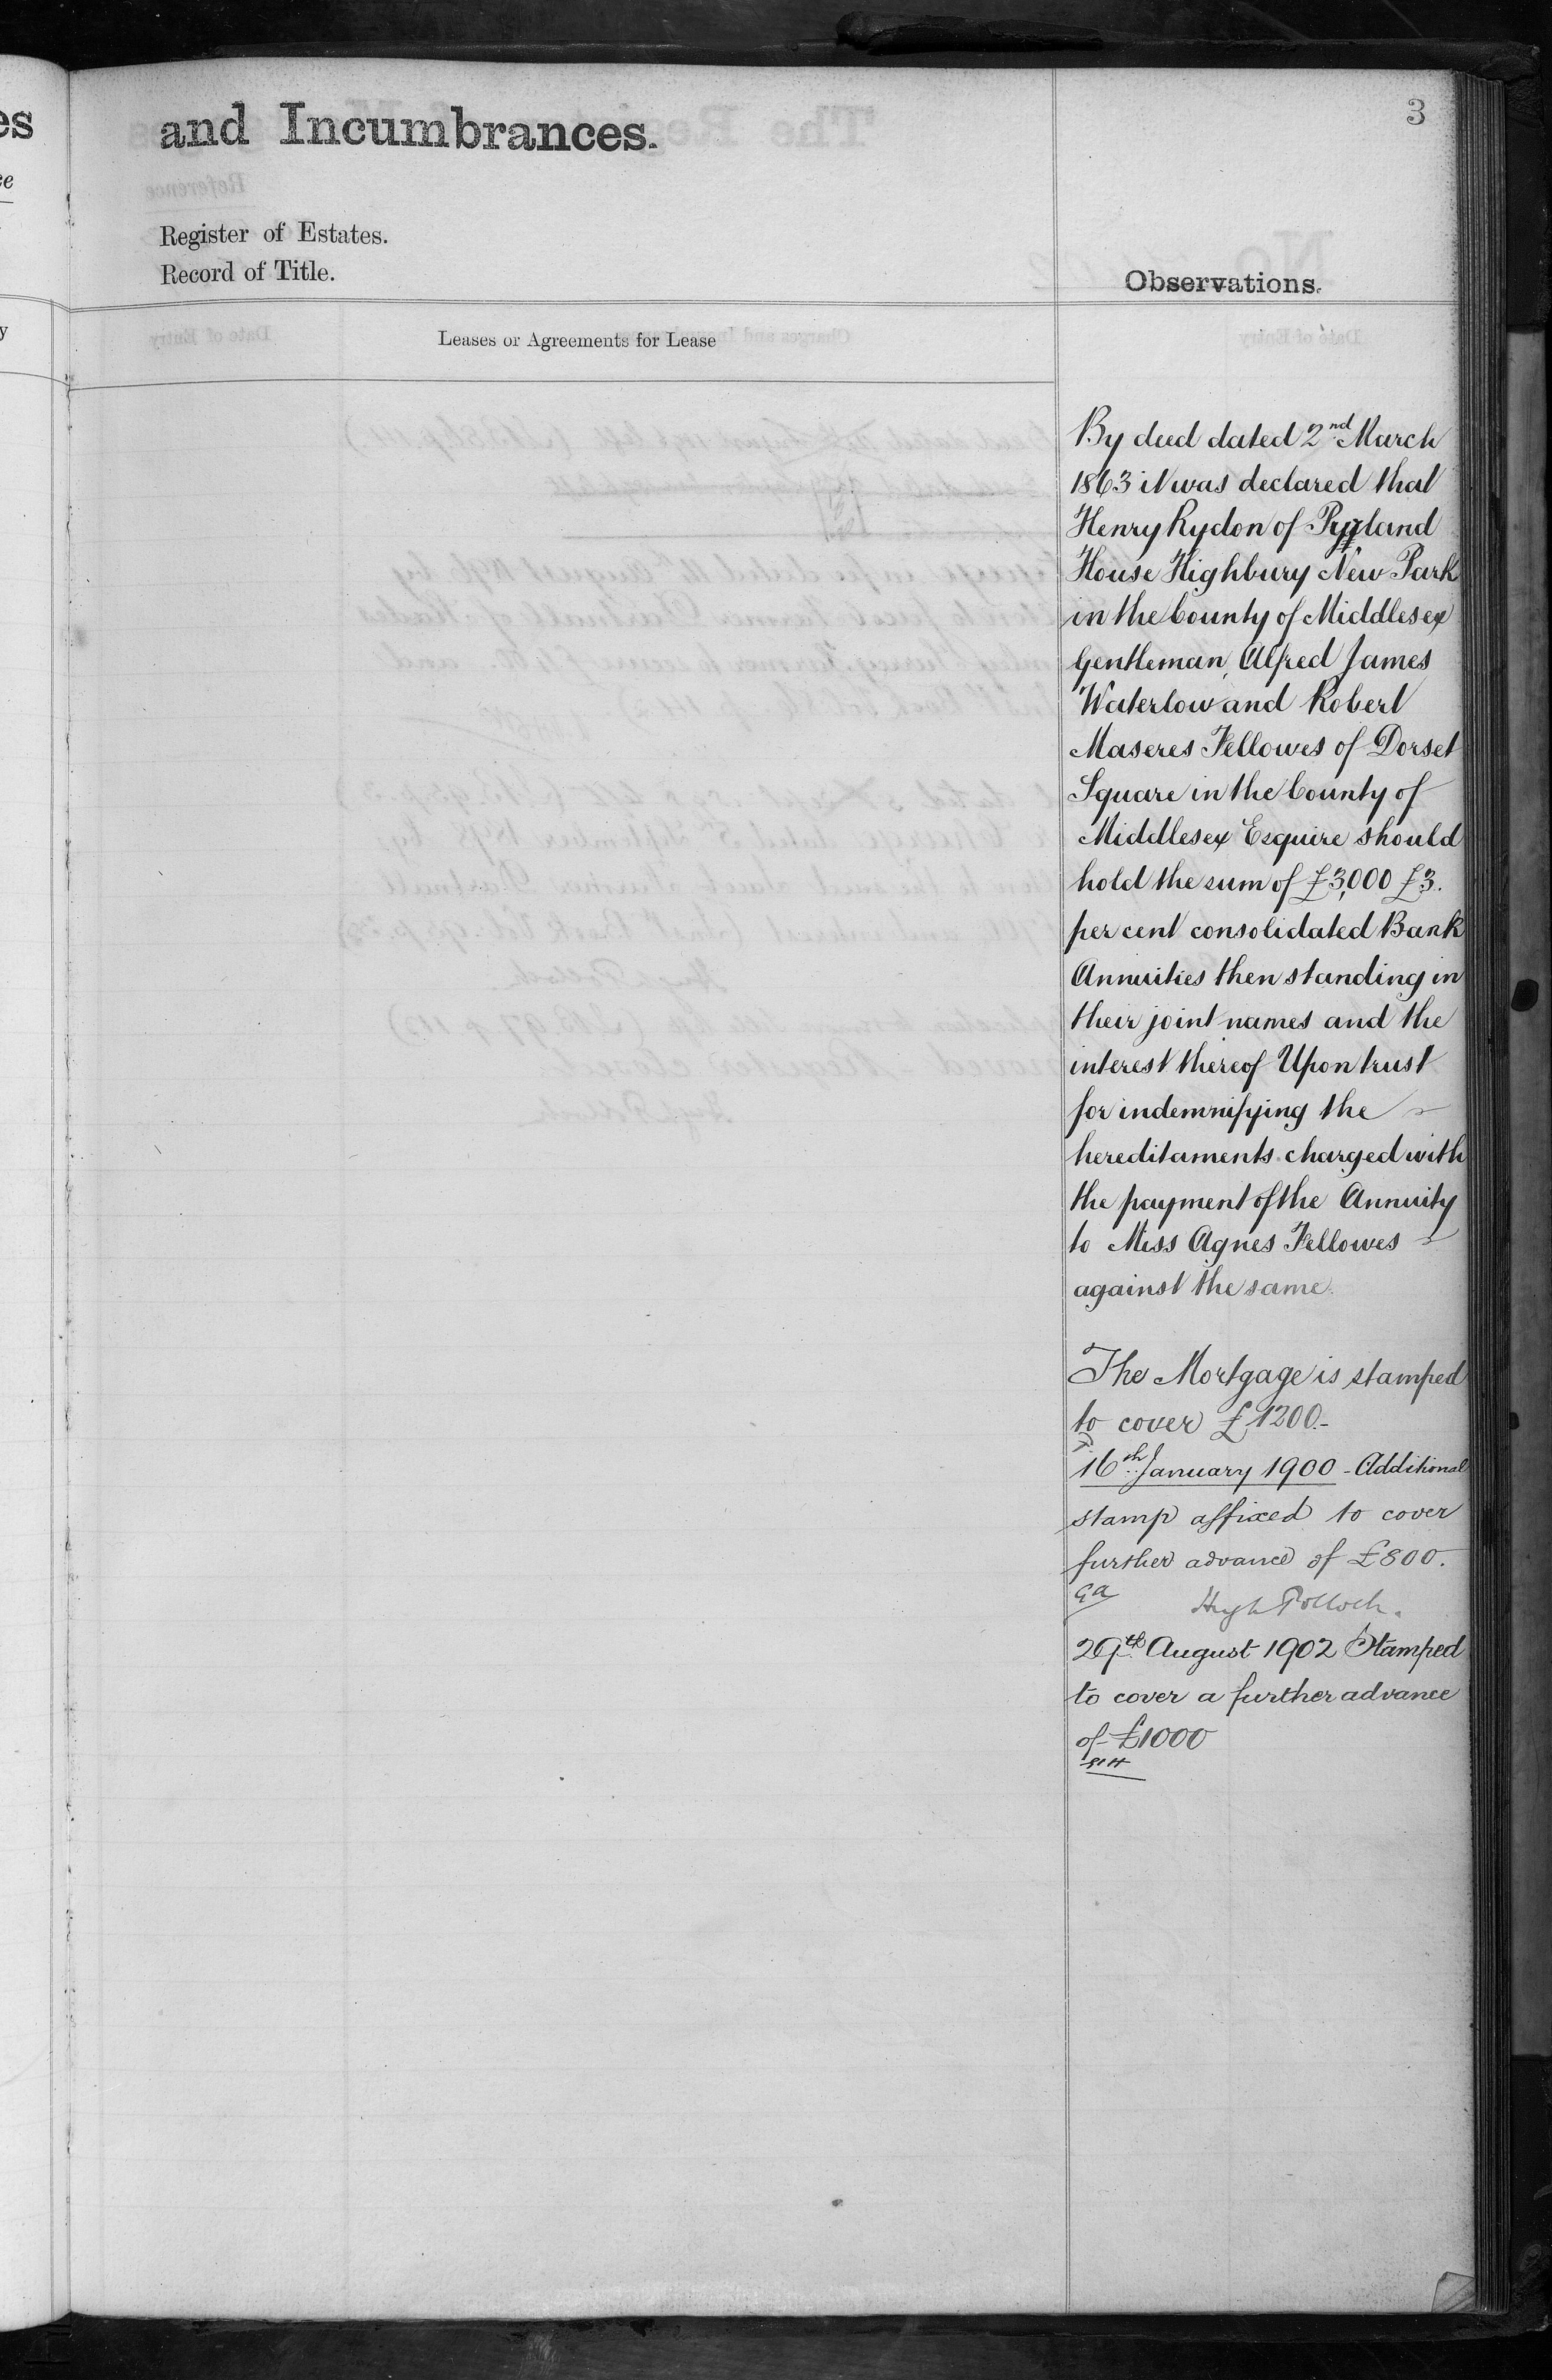 3
and Incumbrances.
Register of Estates.
Record of Title.
Observations.
Leases or Agreements for Lease
By deed dated 2nd March
1863 it was declared that
Henry Rydon of Pyrland
House Highbury New Park
in the County of Middlesex
Gentleman, Alfred James
Waterlow and Robert
Maseres Fellowes of Dorset
Square in the County of
Middlesex Esquire should
hold the sum of £3,000 £3.
per cent consolidated Bank
Annuities then standing in
their joint names and the
interest thereof Upon trust
for indemnifying the
hereditaments charged with
the payment of the Annuity
to Miss Agnes Fellowes
against the same.
The Mortgage is stamped
to cover £1200.-
16th January 1900 - Additional
stamp affixed to cover
further advance of £800.
Hugh Pollock.
29th August 1902 Stamped
to cover a further advance
of £1000